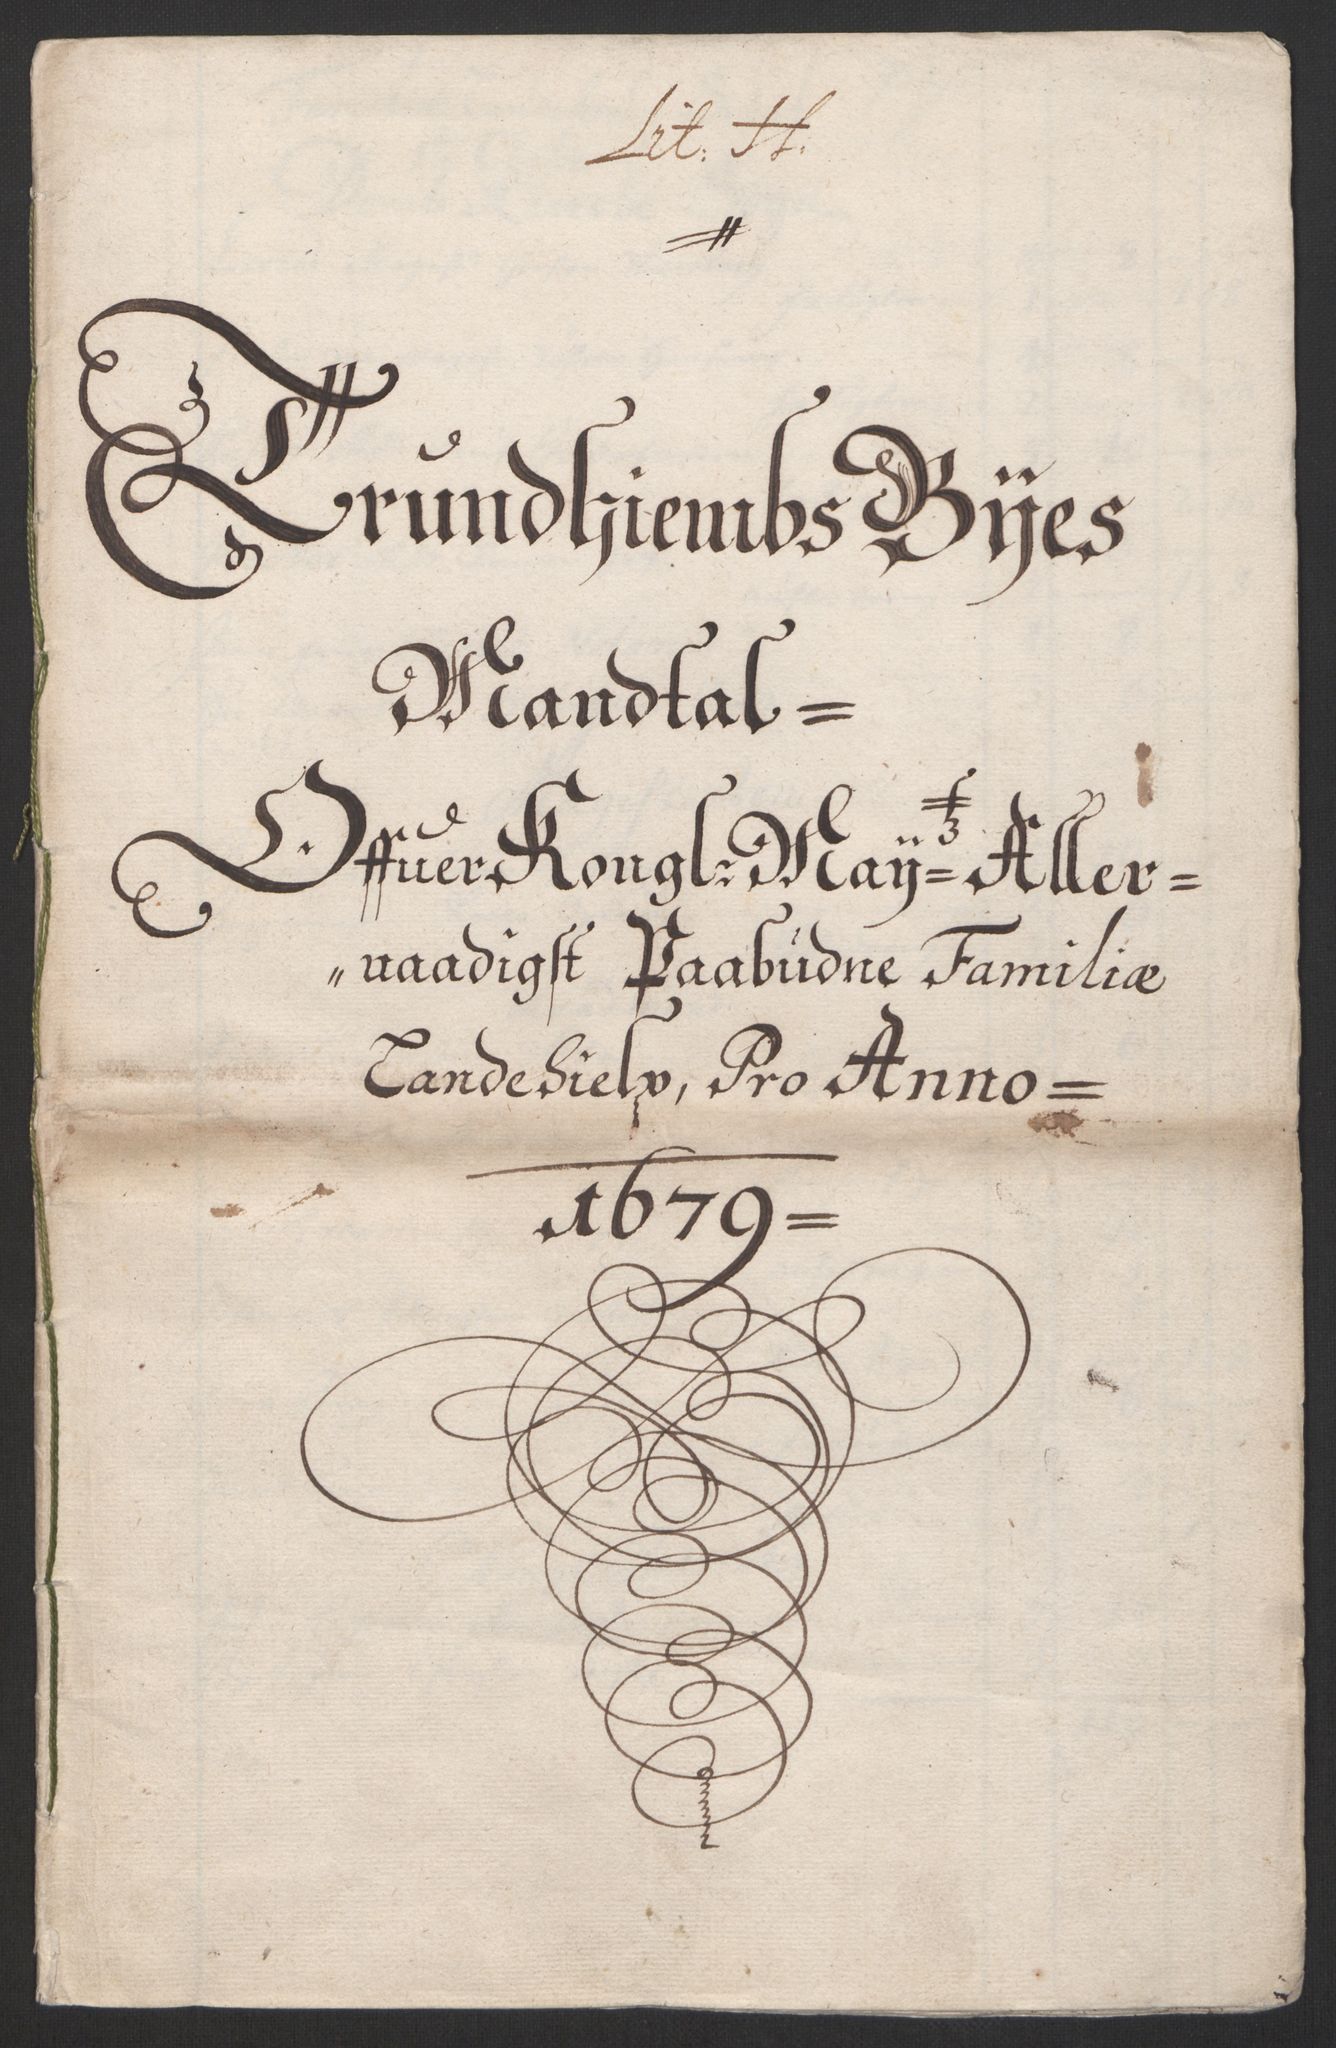 Lit. H.
Trundhiembs Bÿes
Mandtal =
Offuer Kongl: Maÿ=tz Aller=
"naadigst Paabudne Familiæ
Landehielp, Pro Anno =
1679 =